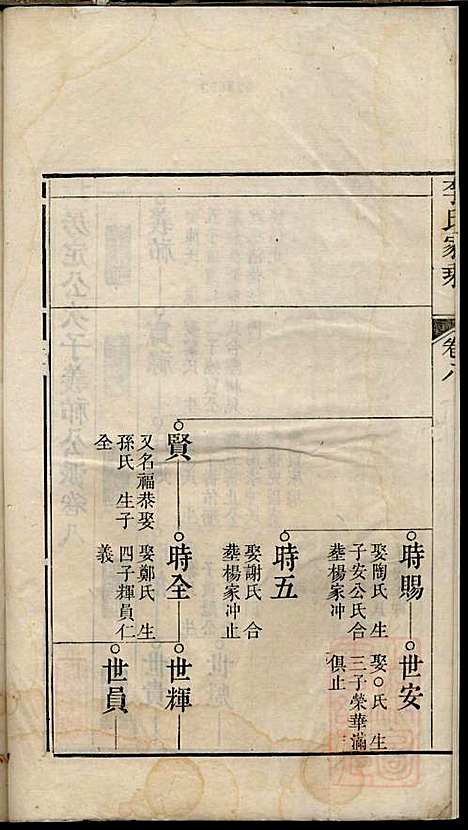 李氏家乘
卷八
時賜
娶陶氏 生
子安公氏合
葬楊家冲
世安
娶○氏 生
三子榮華滿
俱止
時五
娶謝氏 合
葬楊家冲止
賢
又名福恭娶
孫氏 生子
全
時全
娶鄭氏 生
四子輝員仁
義
世輝
世員